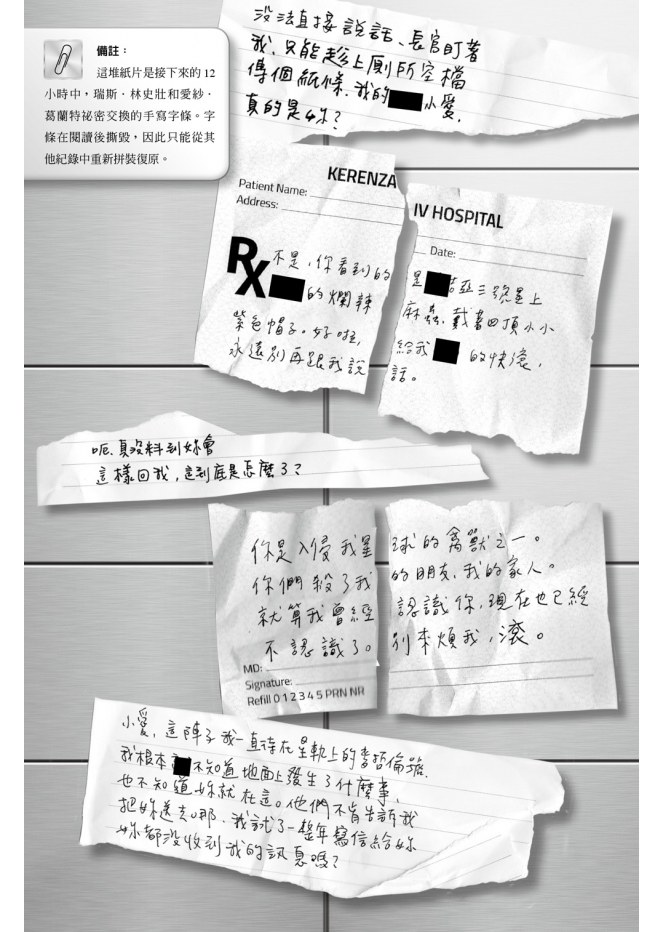 備註：
這堆紙片是接下來的 12
小時中，瑞斯．林史壯和愛紗．
葛蘭特祕密交換的手寫字條。字
條在閱讀後撕毀，因此只能從其
他紀錄中重新拼裝復原。
沒法直接說話、長官盯著
我，只能趁上廁所空檔
傳個紙條，我的 小愛，
真的是妳？
KERENZA IV HOSPITAL
Patient Name:
Address:
Date:
Rx 不是，你看到的是 亞三號星上
的爛辣麻蟲，戴著四頂小小
紫色帽子。好啦，給我 的快滾，
永遠別再跟我說話。
呃，真沒料到妳會
這樣回我，這到底是怎麼了？
你是入侵我星球的禽獸之一。
你們殺了我的朋友、我的家人。
就算我曾經認識你，現在也已經
不認識了。別來煩我，滾。
MD:
Signature:
Refill 0 1 2 3 4 5 PRN NR
小愛，這陣子我一直待在星軌上的麥哲倫號，
我根本 不知道地面上發生了什麼事，
也不知道妳就在這。他們不肯告訴我
把妳送去哪，我試了一整年寫信給妳
妳都沒收到我的訊息嗎？